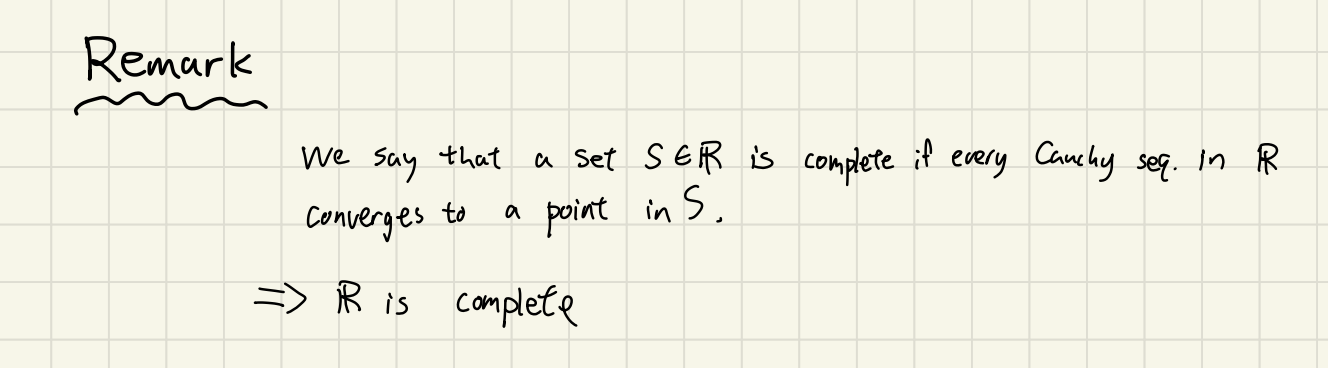 Remark
We say that a set S∈ℝ is complete if every Cauchy seq. in ℝ
converges to a point in S.
⇒ ℝ is complete